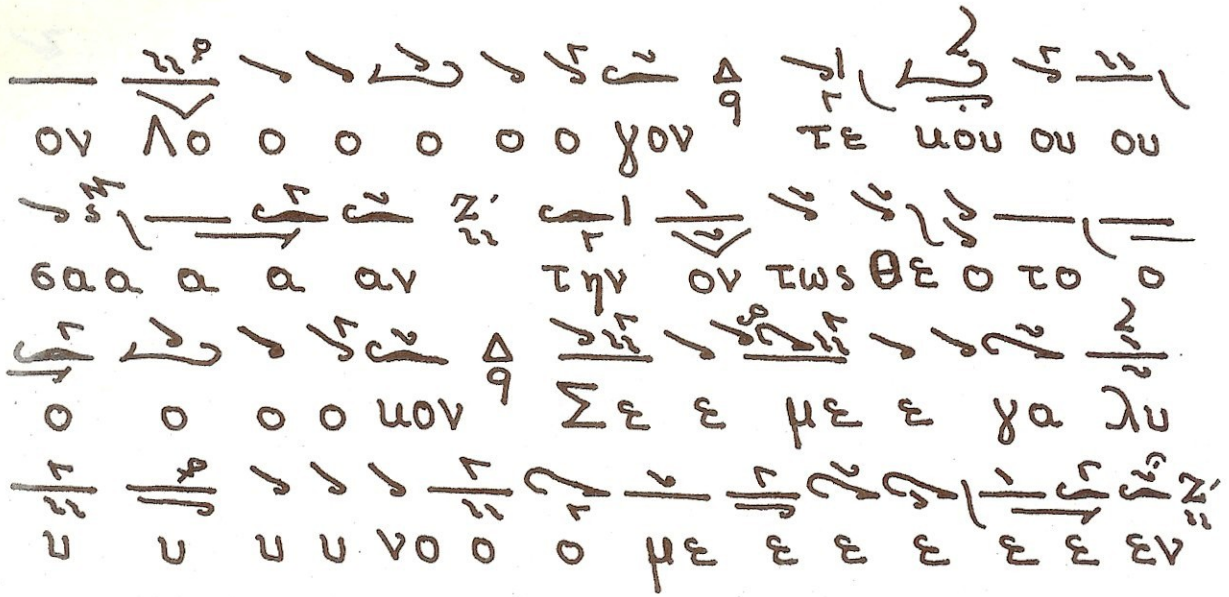 ον Λο ο ο ο ο ο γον Δ q τε κου ου ου
σα α α α αν Ζ' την ον τως Θε ο το ο
ο ο ο ο κον Δ q Σε ε με ε γα λυ
υ υ υ υ νο ο ο με ε ε ε ε ε εν Ζ'